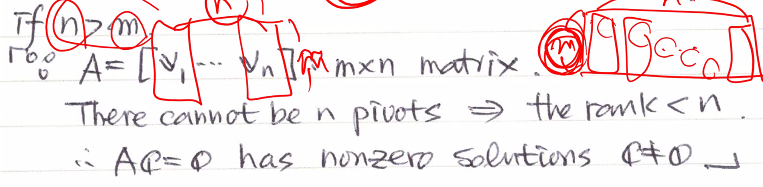 If n > m
∵ A = [v₁ ... vₙ] m m×n matrix. m
There cannot be n pivots ⇒ the rank < n.
∴ Ac = 0 has nonzero solutions c ≠ 0